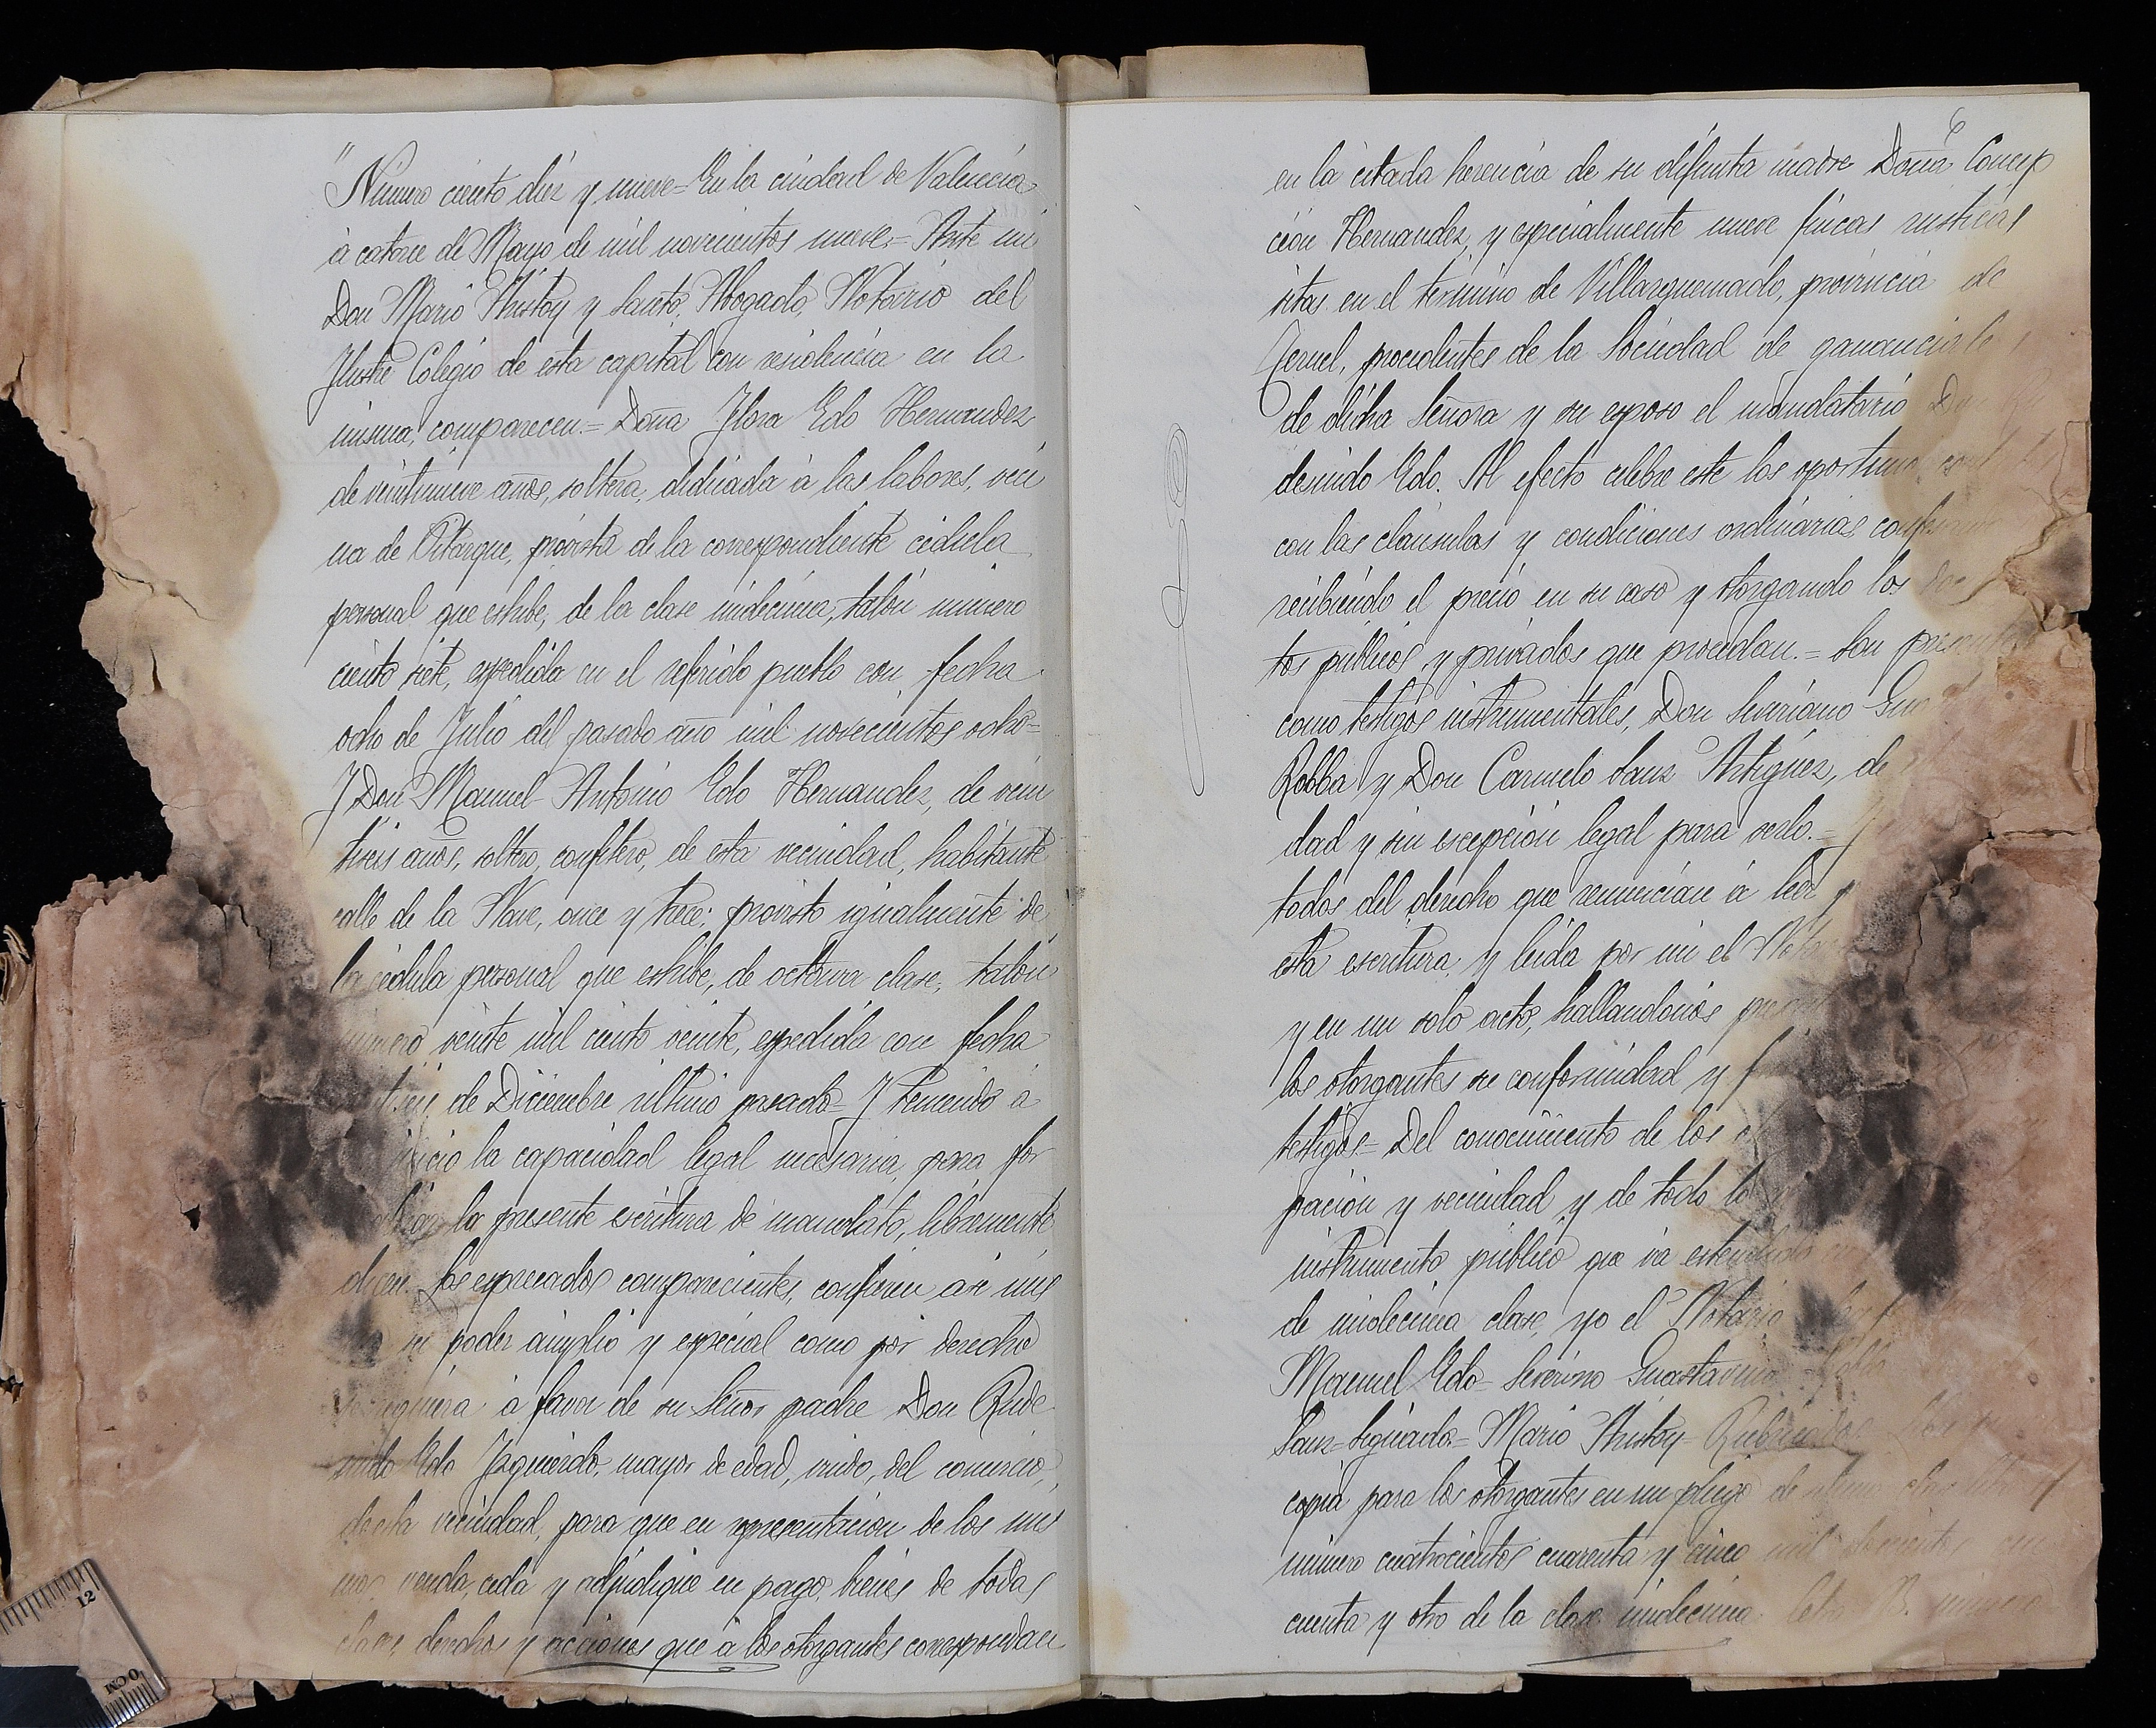 "Número ciento diez y nueve = En la ciudad de Valencia
á catorce de Mayo de mil novecientos nueve = Ante mi
Don Mario Aristoy y Santo, Abogado, Notario del
Ilustre Colegio de esta capital con residencia en la
misma, comparecen = Doña Flora Edo Hernandez
de veintinueve años, soltera, dedicada á las labores, veci
na de Pitarque, provista de la correspondiente cédula
personal que exhibe, de la clase undécima, talón número
ciento siete, expedida en el referido pueblo con fecha
ocho de Julio del pasado año mil novecientos ocho =
Y Don Manuel Antonio Edo Hernandez, de vein
tiseis años, soltero, confitero, de esta vecindad, habitante
calle de la Nave, once y trece; provisto igualmente de
la cédula personal que exhibe, de octava clase, talón
número veinte mil ciento veinte, expedida con fecha
de Diciembre ultimo pasado = Y teniendo á
juicio la capacidad legal necesaria, para for
la presente escritura de mandato, libremente
dicen: Los expresados comparecientes, confieren asi mis
su poder amplio y especial como por derecho
se requiera á favor de su Señor padre Don Rude
sindo Edo Izquierdo, mayor de edad, viudo, del comercio,
de esta vecindad, para que en representación de los mis
mos venda, ceda y adjudique en pago, bienes de todas
clases, derechos y acciones que á los otorgantes correspondan
6
en la citada herencia de su difunta madre Doña Concep
ción Hernandez, y especialmente nueve fincas rusticas
sitas en el término de Villarquemado, provincia de
Teruel, procedentes de la Sociedad de gananciales
de dicha Señora y su esposo el mandatario Don Ru
desindo Edo. Al efecto celebre este los oportunos
con las cláusulas y condiciones ordinarias
recibiendo el precio en su caso y otorgando los
tos públicos y privados que procedan. = Son presentes
como testigos instrumentales, Don Severiano
Robba y Don Carmelo Sanz Artiguez, de
dad y sin escepción legal para serlo. =
todos del derecho que renuncian á leer
esta escritura, y leida por mi el Notario
y en un solo acto, hallandonos
los otorgantes su conformidad y
testigos = Del conocimiento de los
pación y vecindad y de todo lo
instrumento público que va estendido
de undécima clase, yo el Notario
Manuel Edo = Severino Guastavino
Sanz = Signado = Mario Aristoy = Rubricados
copia para los otorgantes en un pliego de
número cuatrocientos cuarenta y cinco mil
cuenta y otro de la clase undécima letra B. número